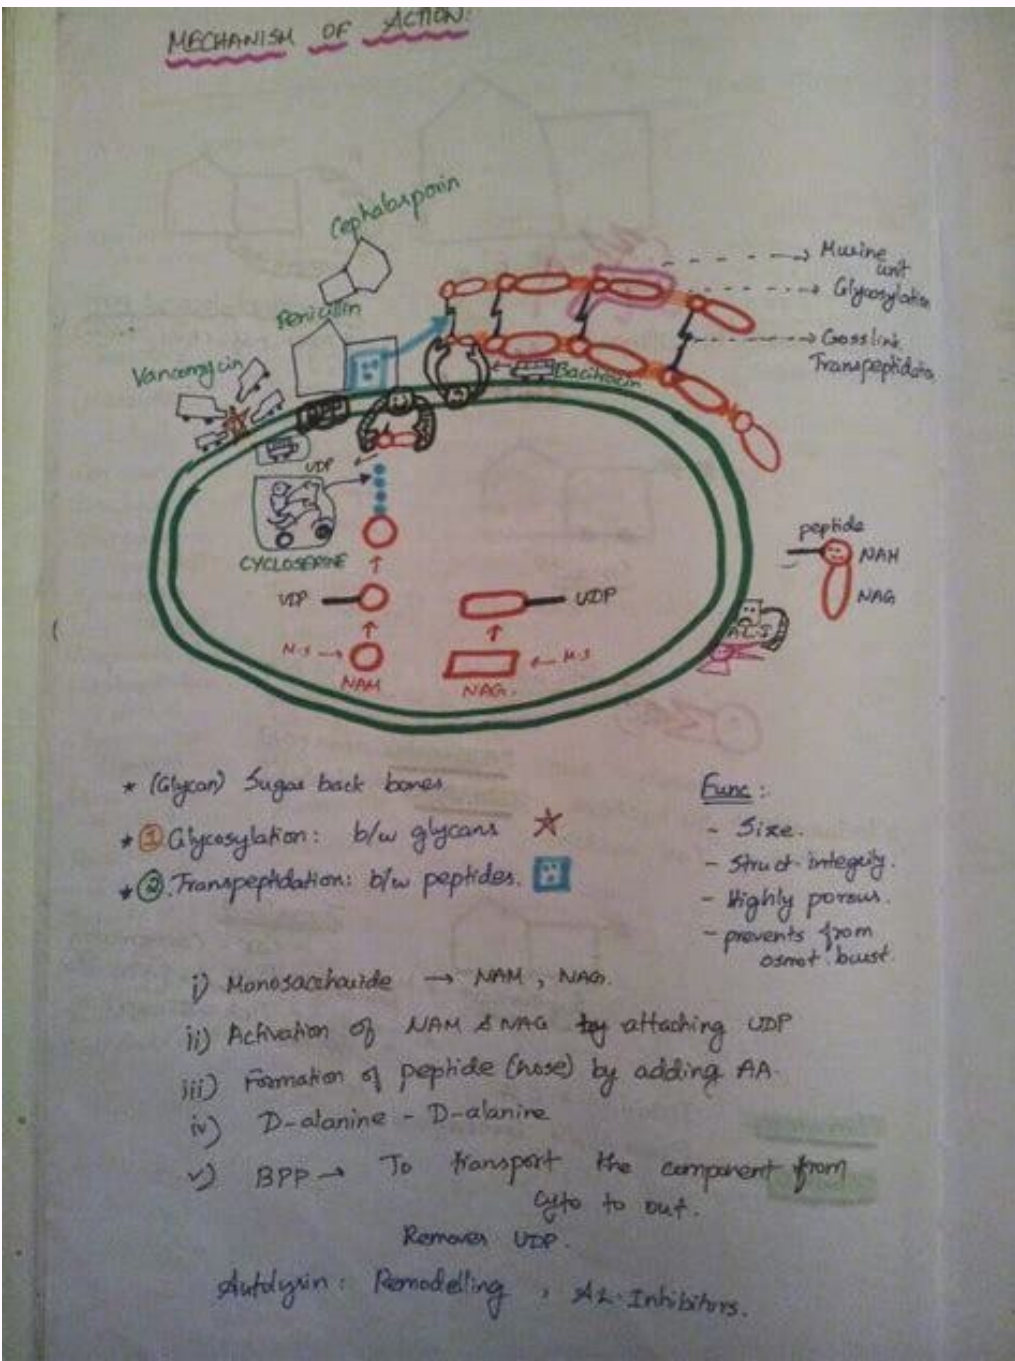 MECHANISM OF ACTION:
Cephalosporin
Penicillin
Vancomycin
Bacitracin
Murine
unit
Glycosylation
Crosslink
Transpeptidation
UDP
CYCLOSERINE
UDP
UDP
M.S
NAM
NAG.
M.S
peptide
NAM
NAG
A.L.I
* (Glycan) Sugar back bones
* ① Glycosylation: b/w glycans
* ② Transpeptidation: b/w peptides.
Func:
- Size.
- Struct integrity.
- Highly porous.
- prevents from
osmot. burst.
i) Monosaccharide → NAM, NAG.
ii) Activation of NAM & NAG by attaching UDP
iii) Formation of peptide (nose) by adding AA.
iv) D-alanine - D-alanine
v) BPP → To transport the component from
Cyto to out.
Removes UDP.
Autolysin: Remodelling, AL-Inhibitors.